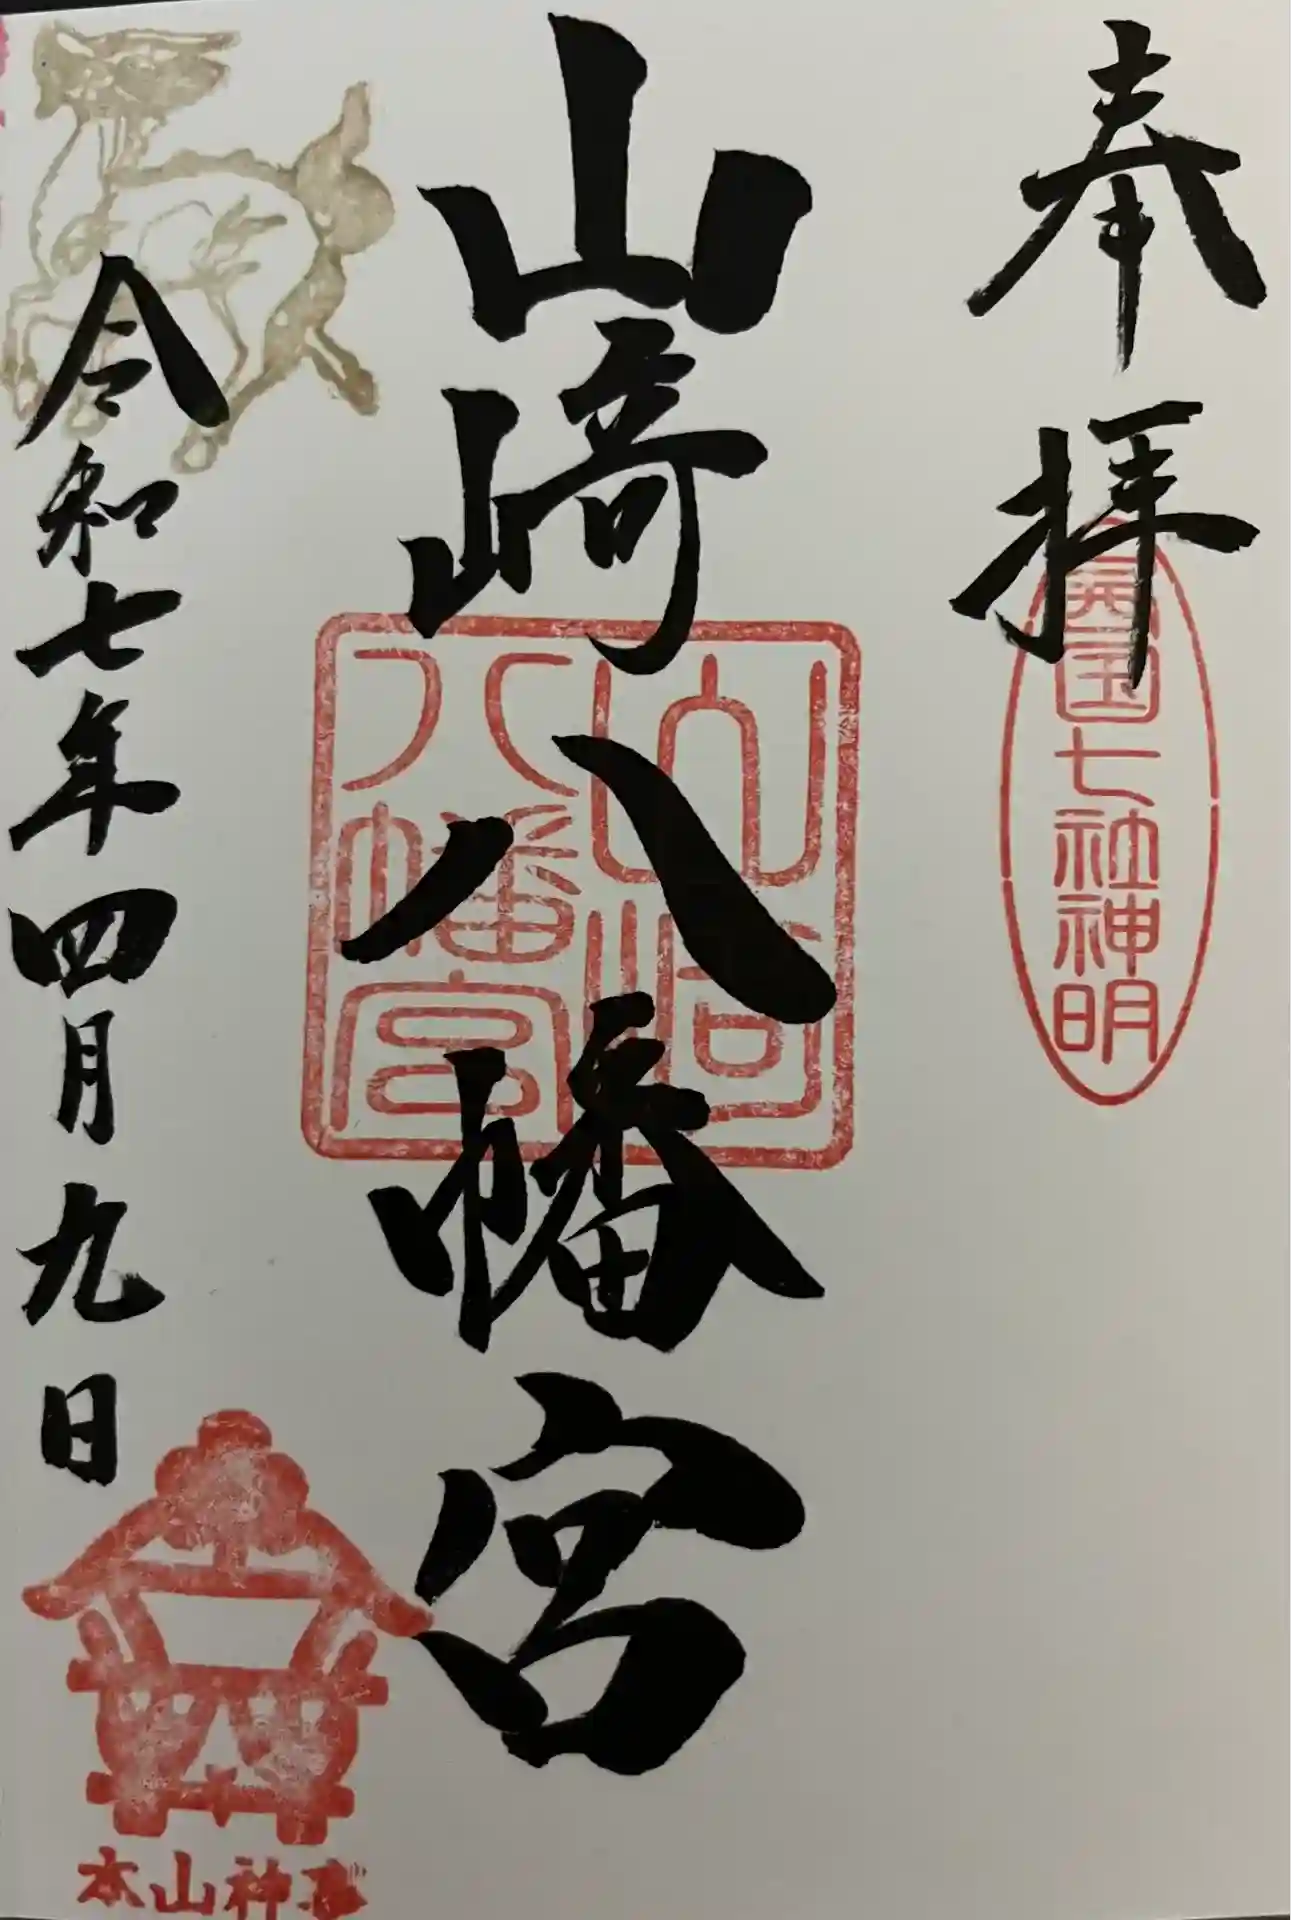 奉拝
開国七社神明
山崎八幡宮
山崎
八幡宮
令和七年四月九日
本山神事